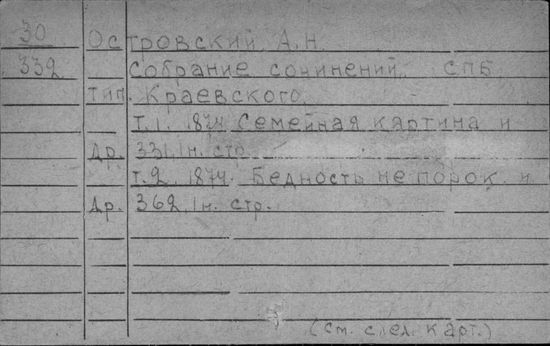 30 Островский, А.Н.
332 Собрание сочинений. СПБ,
тип. Краевского,
Т.1. 1874 Семейная картина и
др. 331, 1н. стр.
т.2. 1874. Бедность не порок и
др. 362, 1н. стр.
(см. след. карт.)